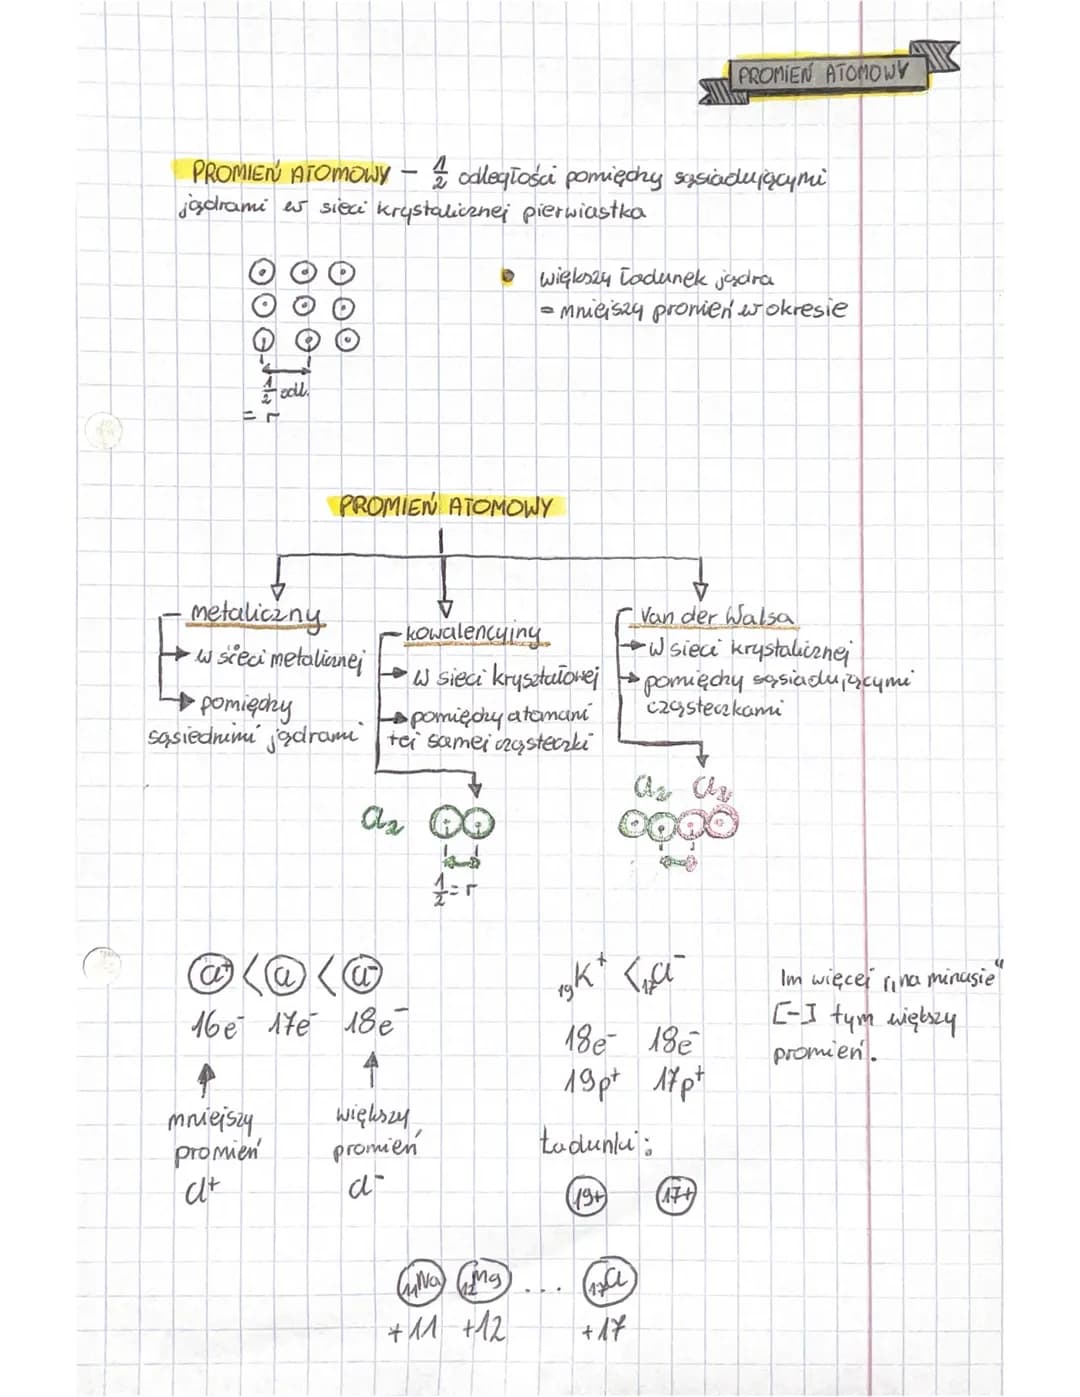 PROMIEŃ ATOMOWY
PROMIEŃ ATOMOWY - 1/2 odległości pomiędzy sąsiadującymi
jądrami w sieci krystalicznej pierwiastka
większy ładunek jądra
= mniejszy promień w okresie
1/2 odl.
= r
PROMIEŃ ATOMOWY
metaliczny
w sieci metalicznej
pomiędzy
sąsiednimi jądrami
kowalencyjny
w sieci kryształowej
pomiędzy atomami
tej samej cząsteczki
Cl₂
1/2 = r
Van der Walsa
w sieci krystalicznej
pomiędzy sąsiadującymi
cząsteczkami
Cl₂ Cl₂
Cl⁺ < Cl < Cl⁻
16e⁻ 17e⁻ 18e⁻
mniejszy
promień
Cl⁺
większy
promień
Cl⁻
₁₉K⁺ < ₁₇Cl⁻
18e⁻ 18e⁻
19p⁺ 17p⁺
Ładunki:
19+ 17+
Im więcej „na minusie"
[-] tym większy
promień.
₁₁Na ₁₂Mg ... ₁₇Cl
+11 +12 +17